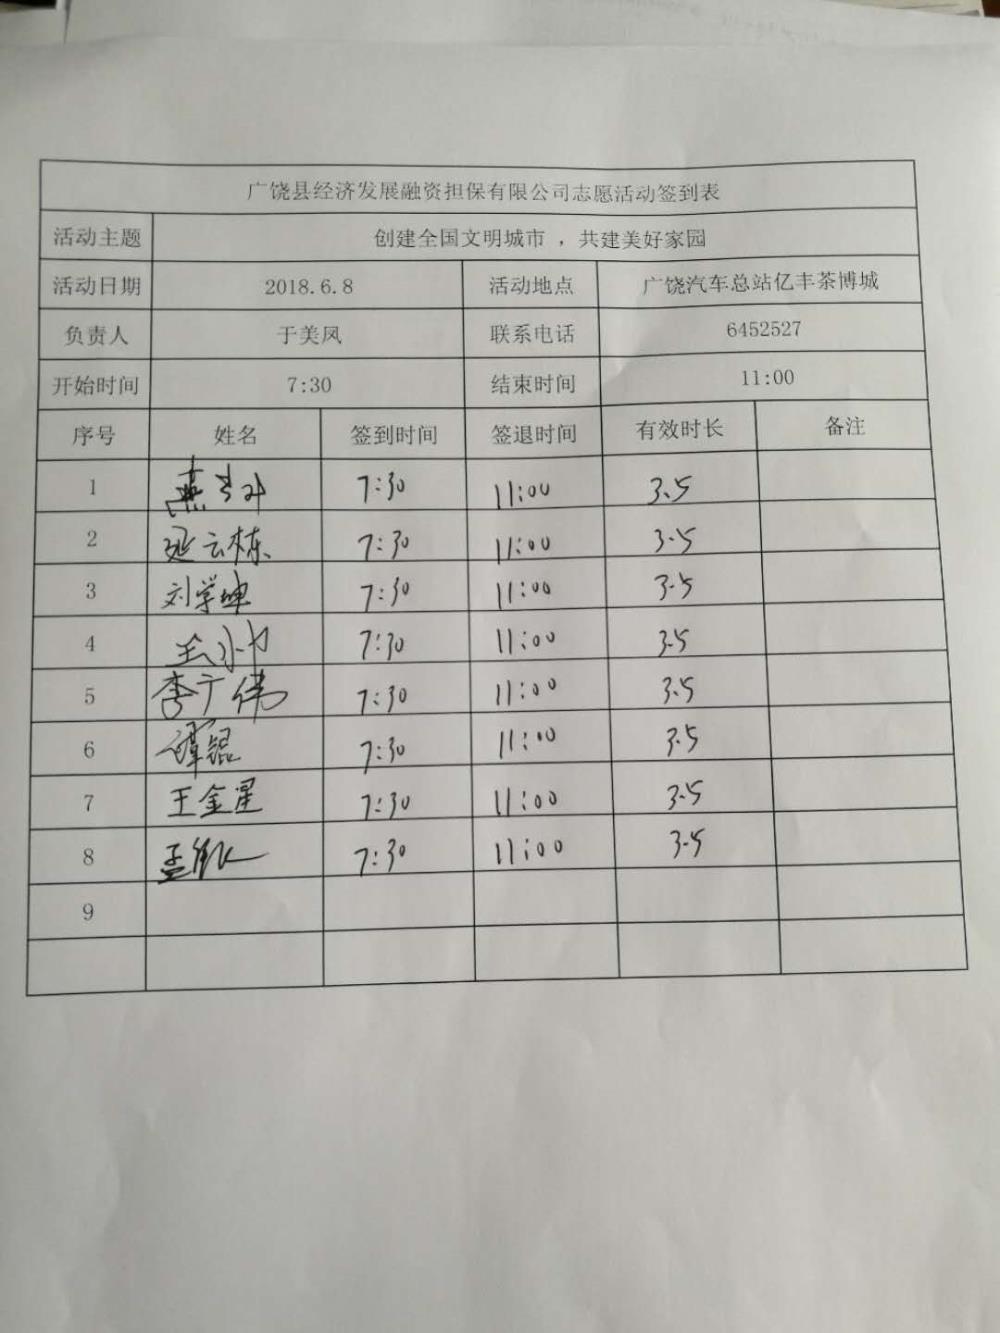 广饶县经济发展融资担保有限公司志愿活动签到表
活动主题 创建全国文明城市，共建美好家园
活动日期 2018.6.8 活动地点 广饶汽车总站亿丰茶博城
负责人 于美凤 联系电话 6452527
开始时间 7:30 结束时间 11:00
序号 姓名 签到时间 签退时间 有效时长 备注
1 7:30 11:00 3.5
2 延云栋 7:30 11:00 3.5
3 刘学坤 7:30 11:00 3.5
4 7:30 11:00 3.5
5 李广伟 7:30 11:00 3.5
6 谭锟 7:30 11:00 3.5
7 王金星 7:30 11:00 3.5
8 7:30 11:00 3.5
9